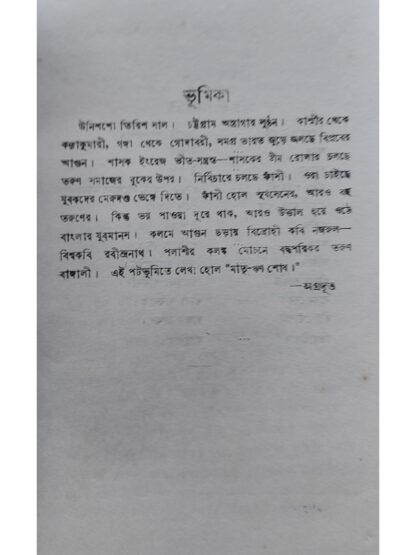 ভূমিকা
উনিশশো তিরিশ সাল। চট্টগ্রাম অস্ত্রাগার লুণ্ঠন। কাশ্মীর থেকে
কন্যাকুমারী, গঙ্গা থেকে গোদাবরী, সমগ্র ভারত জুড়ে জ্বলছে বিপ্লবের
আগুন। শাসক ইংরেজ ভীত-সন্ত্রস্ত—শাসকের ষ্টীম রোলার চলছে
তরুণ সমাজের বুকের উপর। নির্বিচারে চলছে ফাঁসী। ওরা চাইছে
যুবকদের মেরুদণ্ড ভেঙ্গে দিতে। ফাঁসী হোল সূর্যসেনের, আরও বহু
তরুণের। কিন্তু ভয় পাওয়া দূরে থাক, আরও উত্তাল হয়ে ওঠে
বাংলার যুবমানস। কলমে আগুন ছড়ায় বিদ্রোহী কবি নজরুল—
বিশ্বকবি রবীন্দ্রনাথ। পলাশীর কলঙ্ক মোচনে বদ্ধপরিকর তরুণ
বাঙ্গালী। এই পটভূমিতে লেখা হোল “মাতৃ-ঋণ শোধ।”
—অগ্রদূত